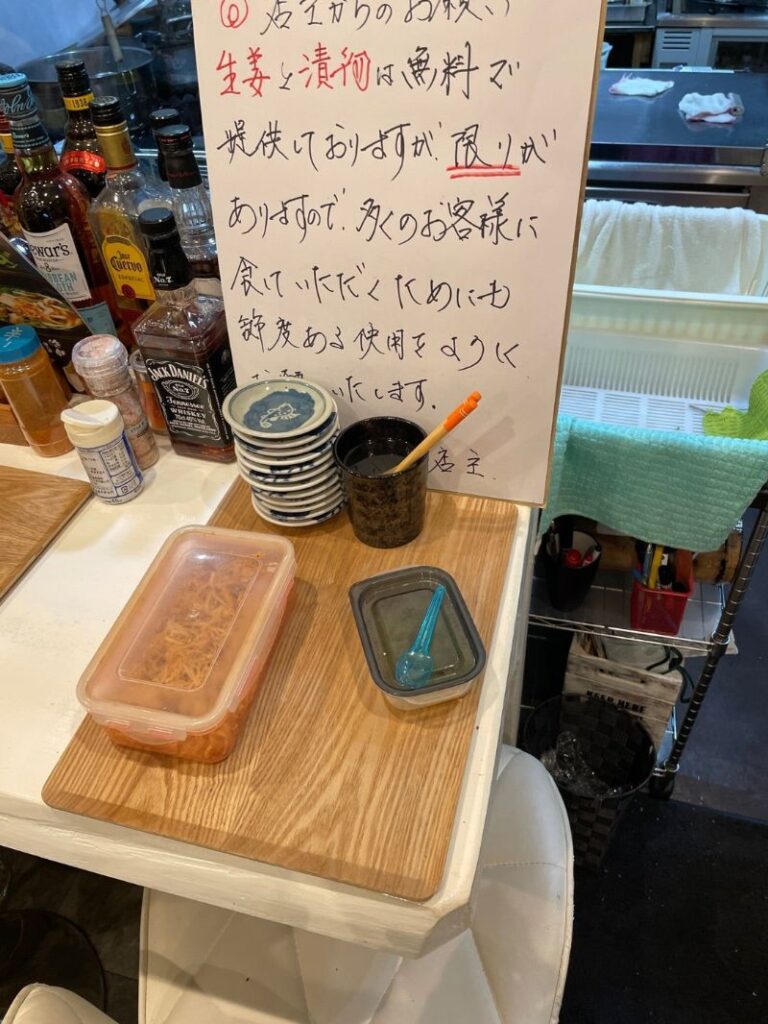 ⑥ 店主からのお願い
生姜と漬物は無料で
提供しておりますが、限りが
ありますので、多くのお客様に
食べていただくためにも
節度ある使用をよろしく
お願いいたします。
店主
1938
Dewar's
8
Jose
Cuervo
ESPECIAL
No. 7
JACK DANIEL'S
OLD
No. 7
Tennessee
WHISKEY
BEER HERE